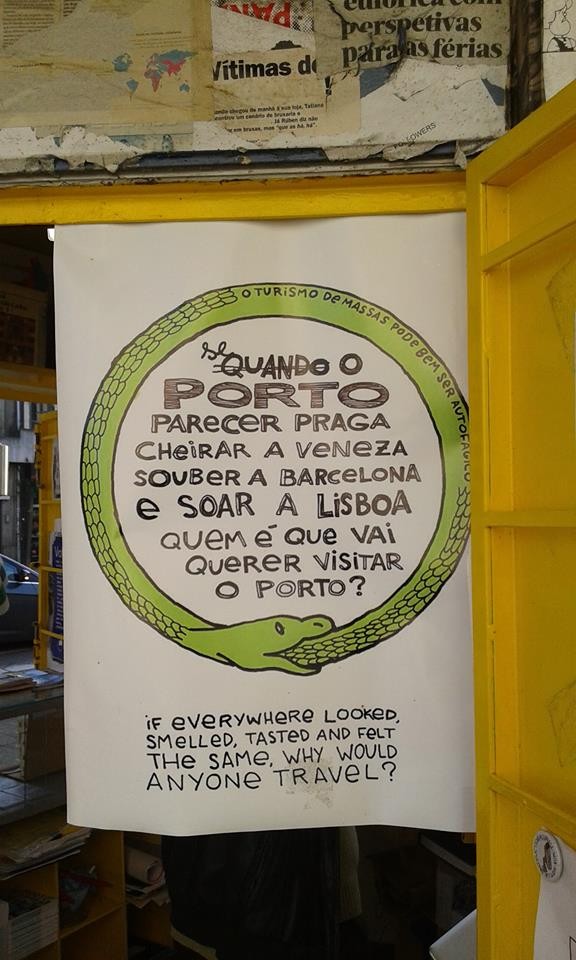 PAN
Vítimas de
euforica com
perspetivas
para as férias
ando chegou de manhã à sua loja, Tatiane
encontrou um cenário de bruxaria e
Já Rúben diz não
er em bruxas, mas "que as há, há"
FOLLOWERS
O TURISMO DE MASSAS PODE BEM SER AUTOFÁGICO
se
QUANDO O
PORTO
PARECER PRAGA
CHEIRAR A VENEZA
SOUBER A BARCELONA
e SOAR A LISBOA
QUEM É QUE VAI
QUERER VISITAR
O PORTO?
IF EVERYWHERE LOOKED,
SMELLED, TASTED AND FELT
THE SAME, WHY WOULD
ANYONE TRAVEL?